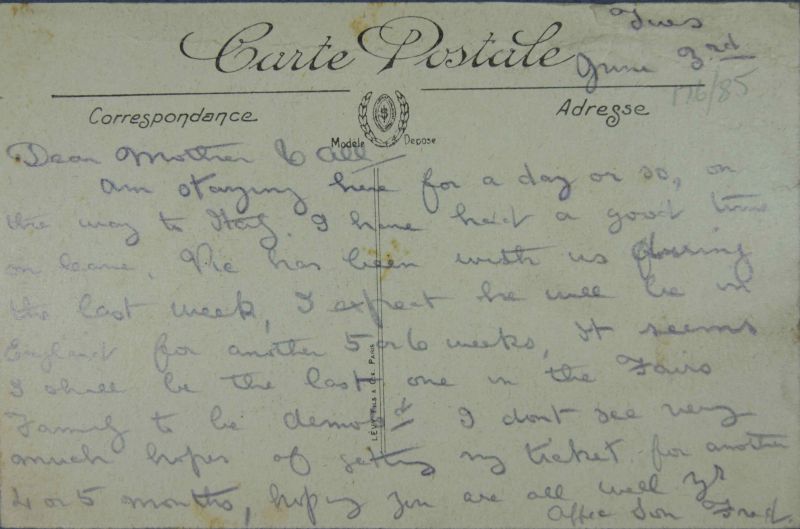 Carte Postale
Tues
June 3rd
176/85
Correspondance
Adresse
Modèle Déposé
Dear Mother & All
Am staying here for a day or so, on
the way to Italy. I have had a good time
on leave, Vic has been with us during
the last week, I expect he will be in
England for another 5 or 6 weeks, It seems
I shall be the last one in the
Family to be demob. I dont see very
much hopes of getting my ticket for another
4 or 5 months, hoping you are all well Yr
Affec Son Fred
LEVY FILS & Cie. PARIS